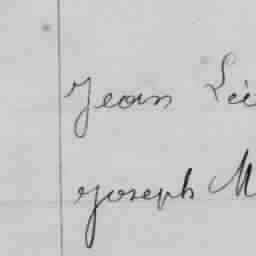 Jean Lé
Joseph M